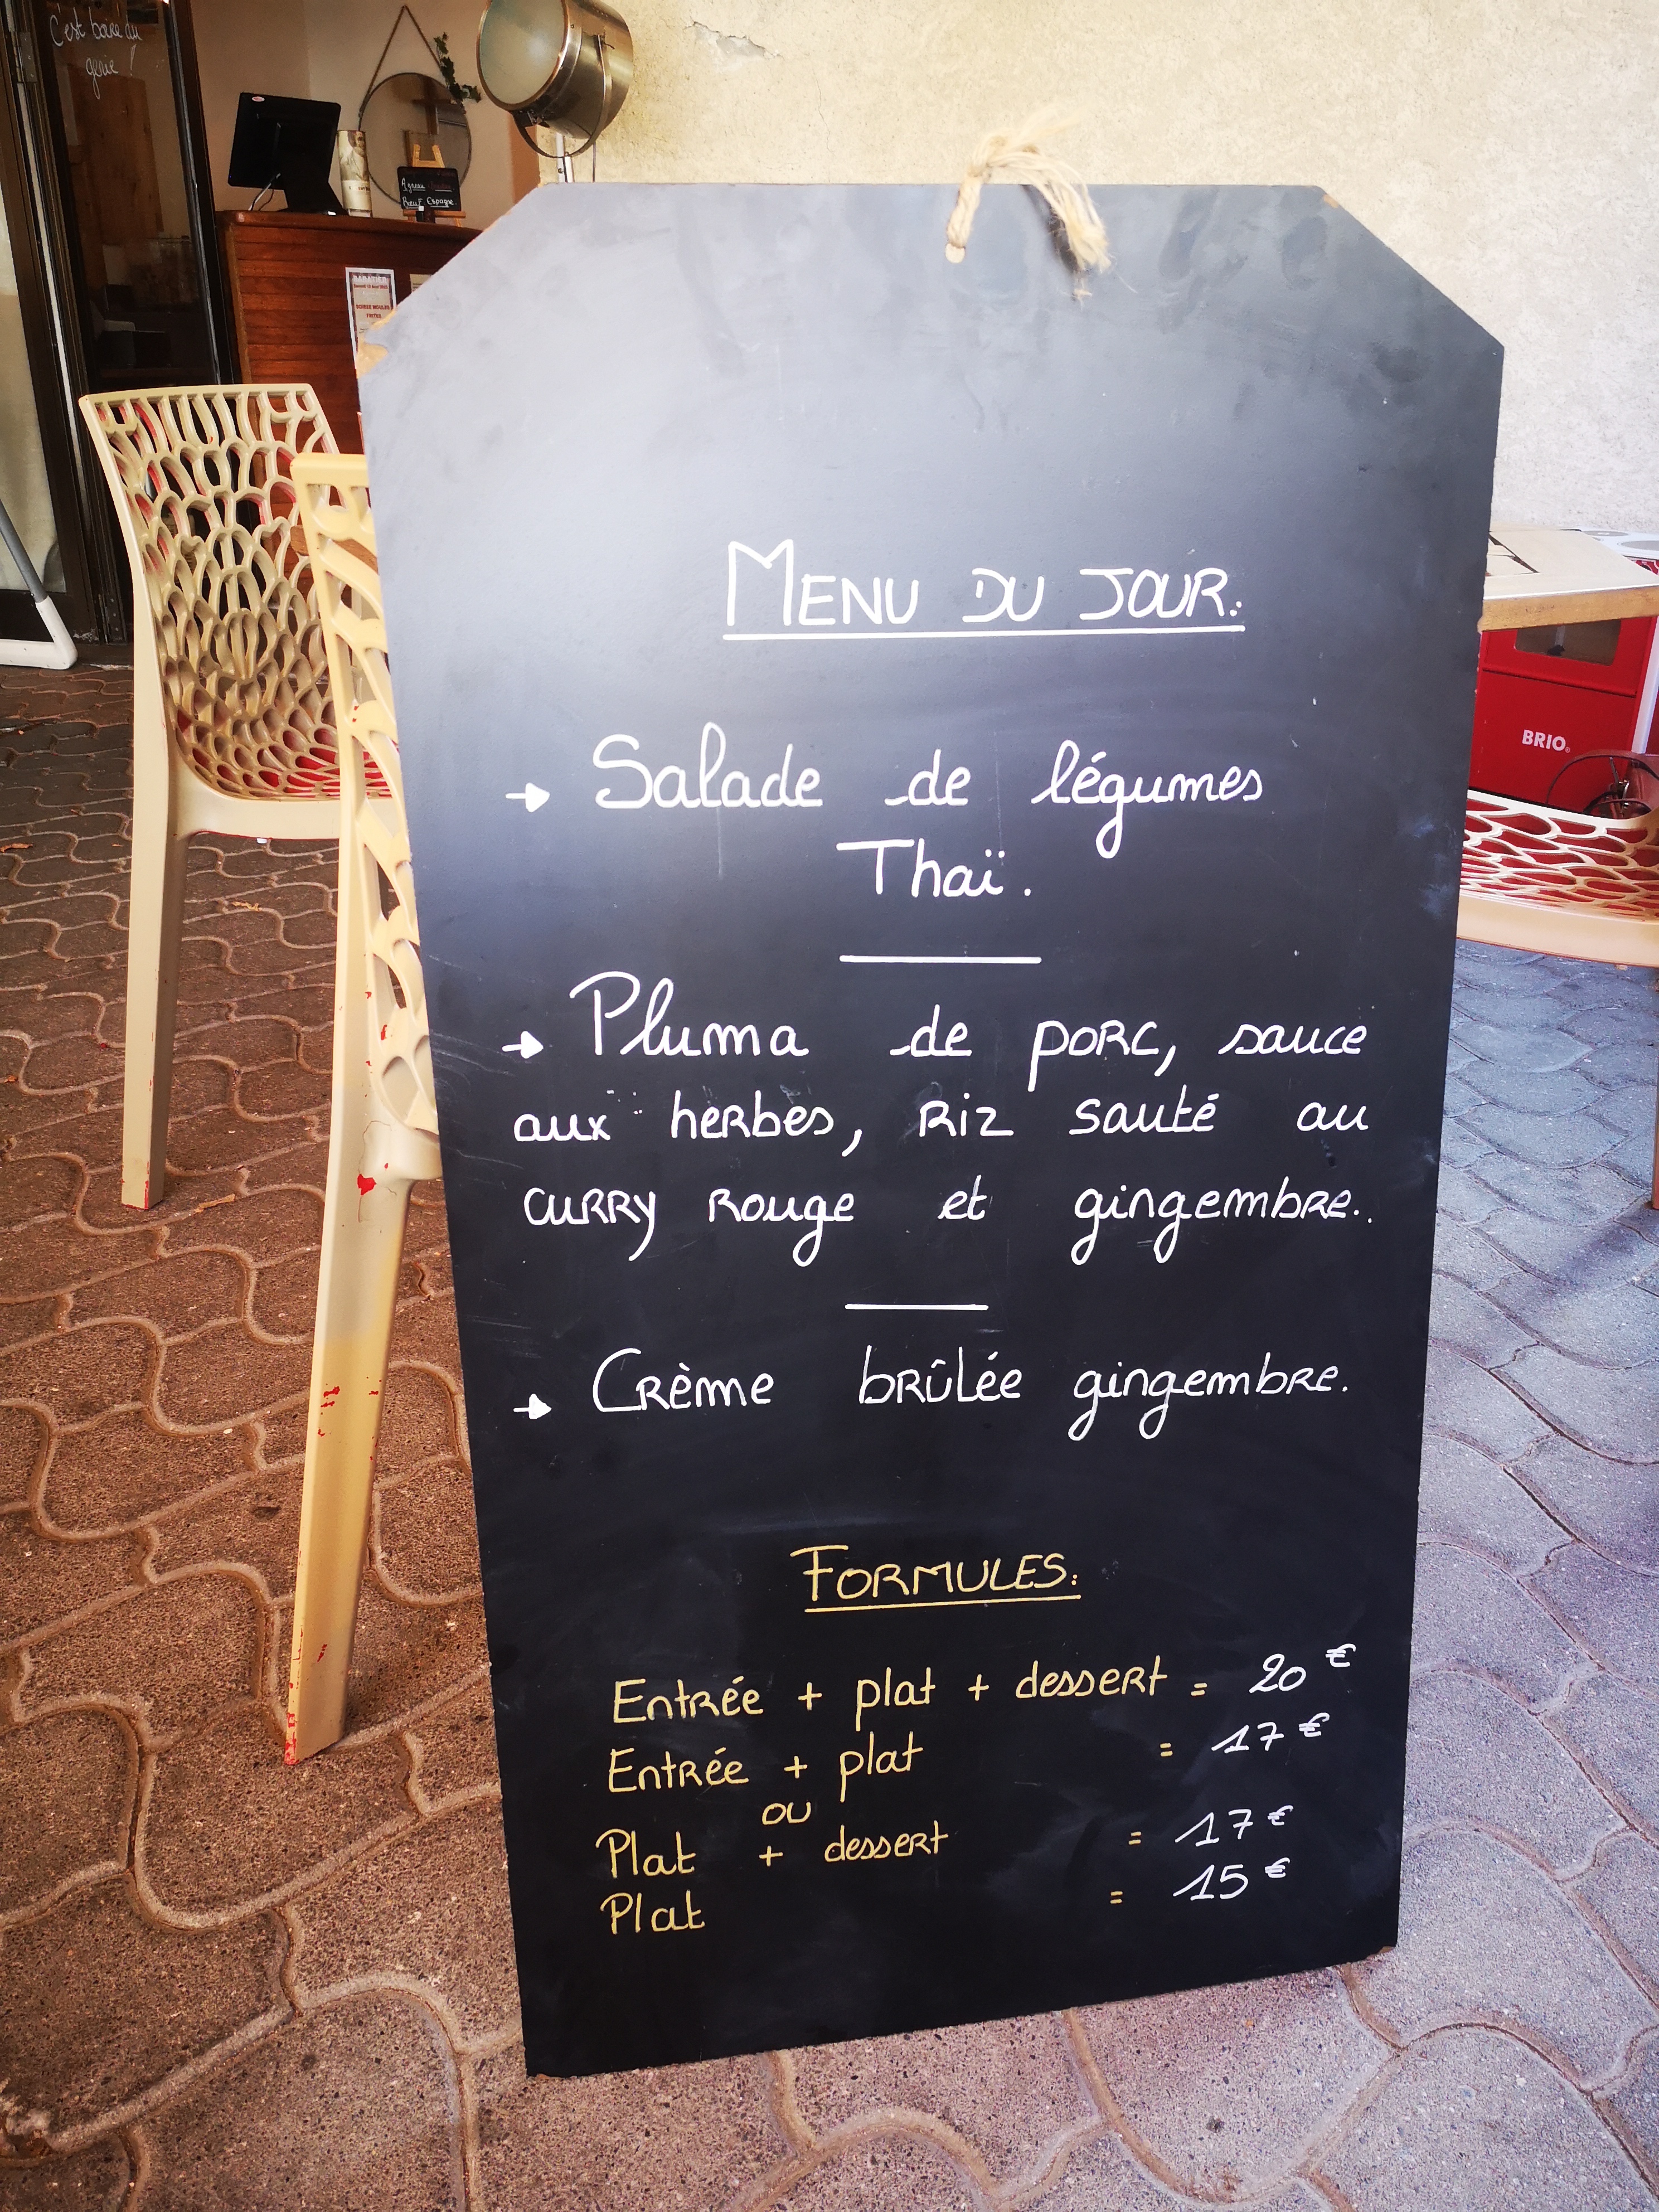 C'est boire du
génie !
Agneau
Bœuf Espagne
SOIREE MOULES
FRITES
MENU DU JOUR:
→ Salade de légumes
Thaï.
→ Pluma de porc, sauce
aux herbes, riz sauté au
curry rouge et gingembre..
→ Crème brûlée gingembre.
FORMULES:
Entrée + plat + dessert = 20 €
Entrée + plat = 17 €
ou
Plat + dessert = 17 €
Plat = 15 €
BRIO